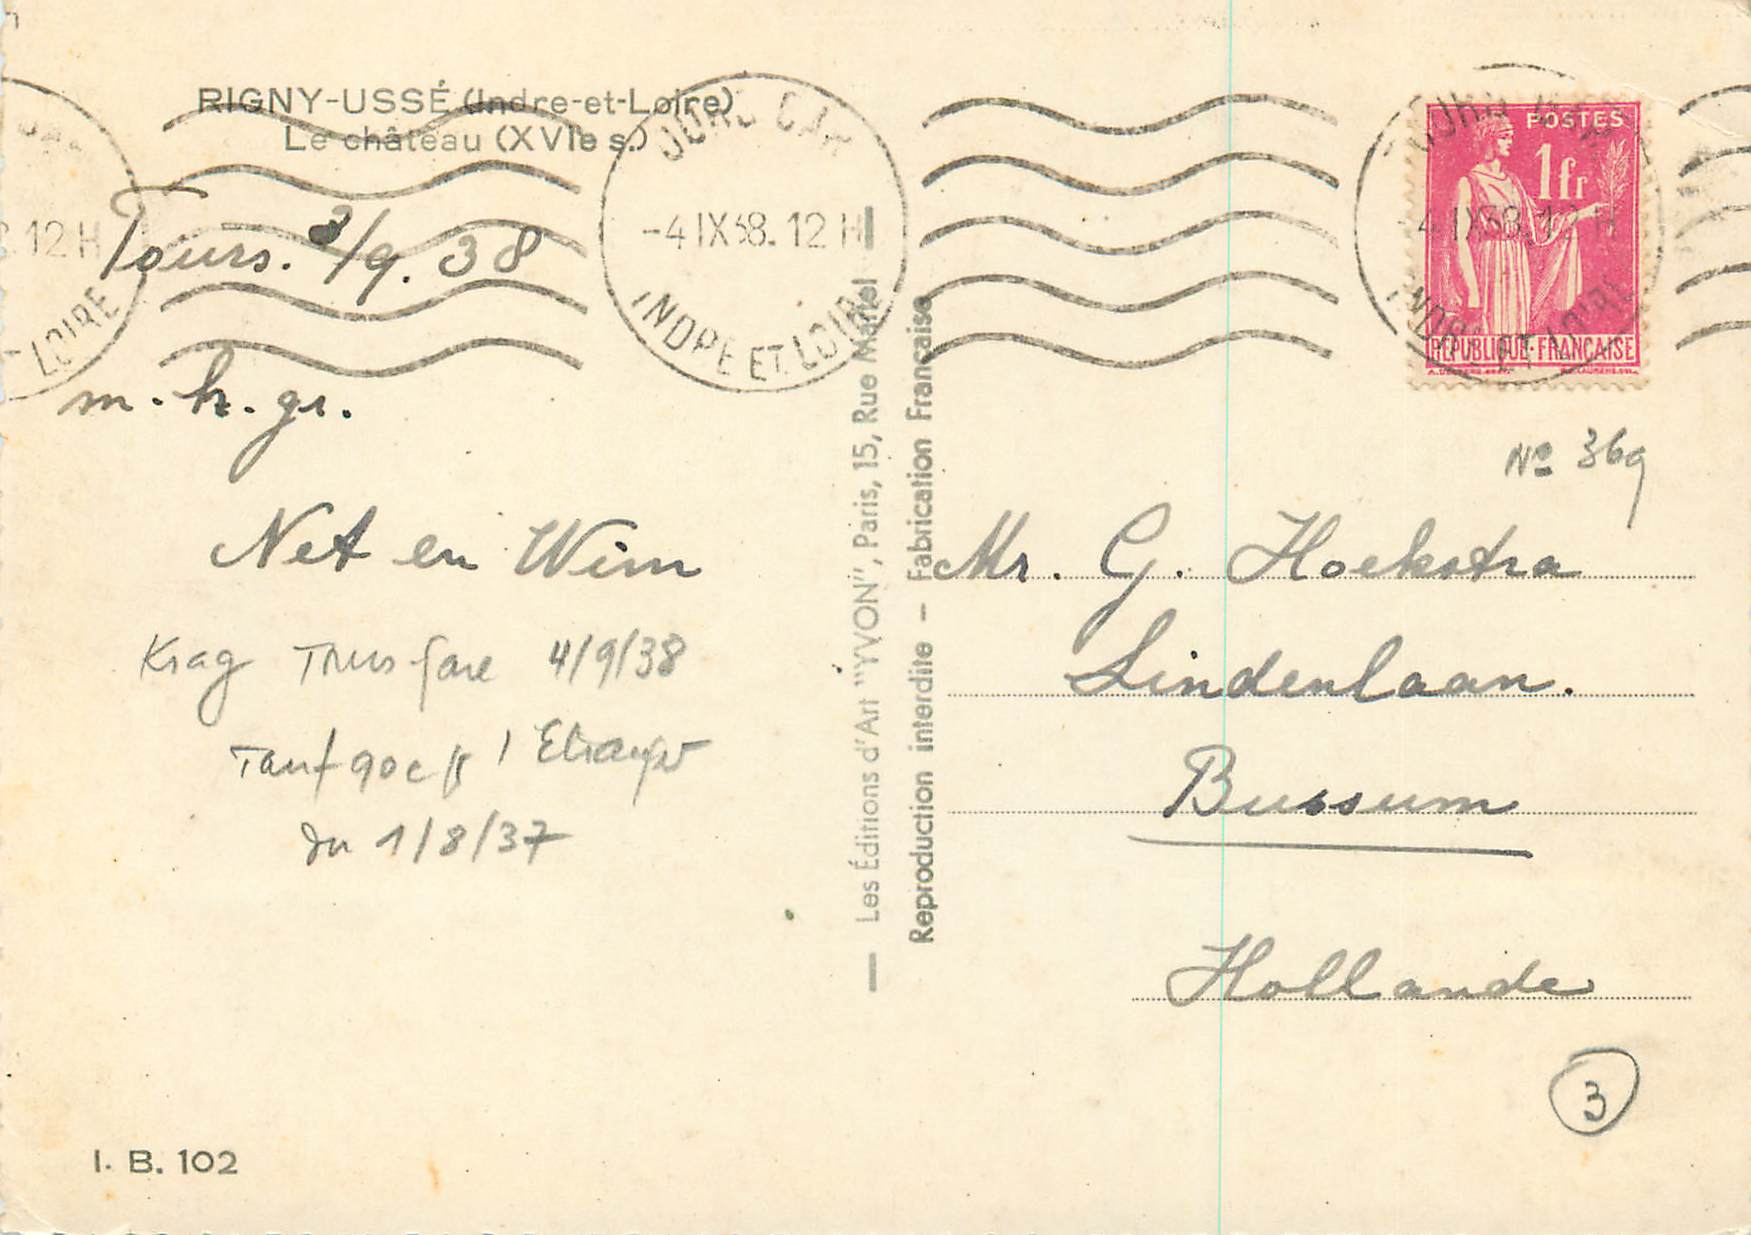 RIGNY-USSÉ (Indre-et-Loire)
Le château (XVIe s.)
Tours. 3/9. 38
m. h. gr.
Net en Wim
Krag Tours gare 4/9/38
Tarif 90c pr l'Etranger
du 1/8/37
I. B. 102
-4 IX 38. 12 H
INDRE ET LOIRE
12 H
LOIRE
— Les Éditions d'Art "YVON", Paris, 15, Rue Martel —
Reproduction interdite – Fabrication Française
POSTES
1fr
REPUBLIQUE·FRANÇAISE
-4 IX 38. 12 H
INDRE ET LOIRE
No 369
Mr. G. Hoekstra
Lindenlaan.
Bussum
Hollande
3